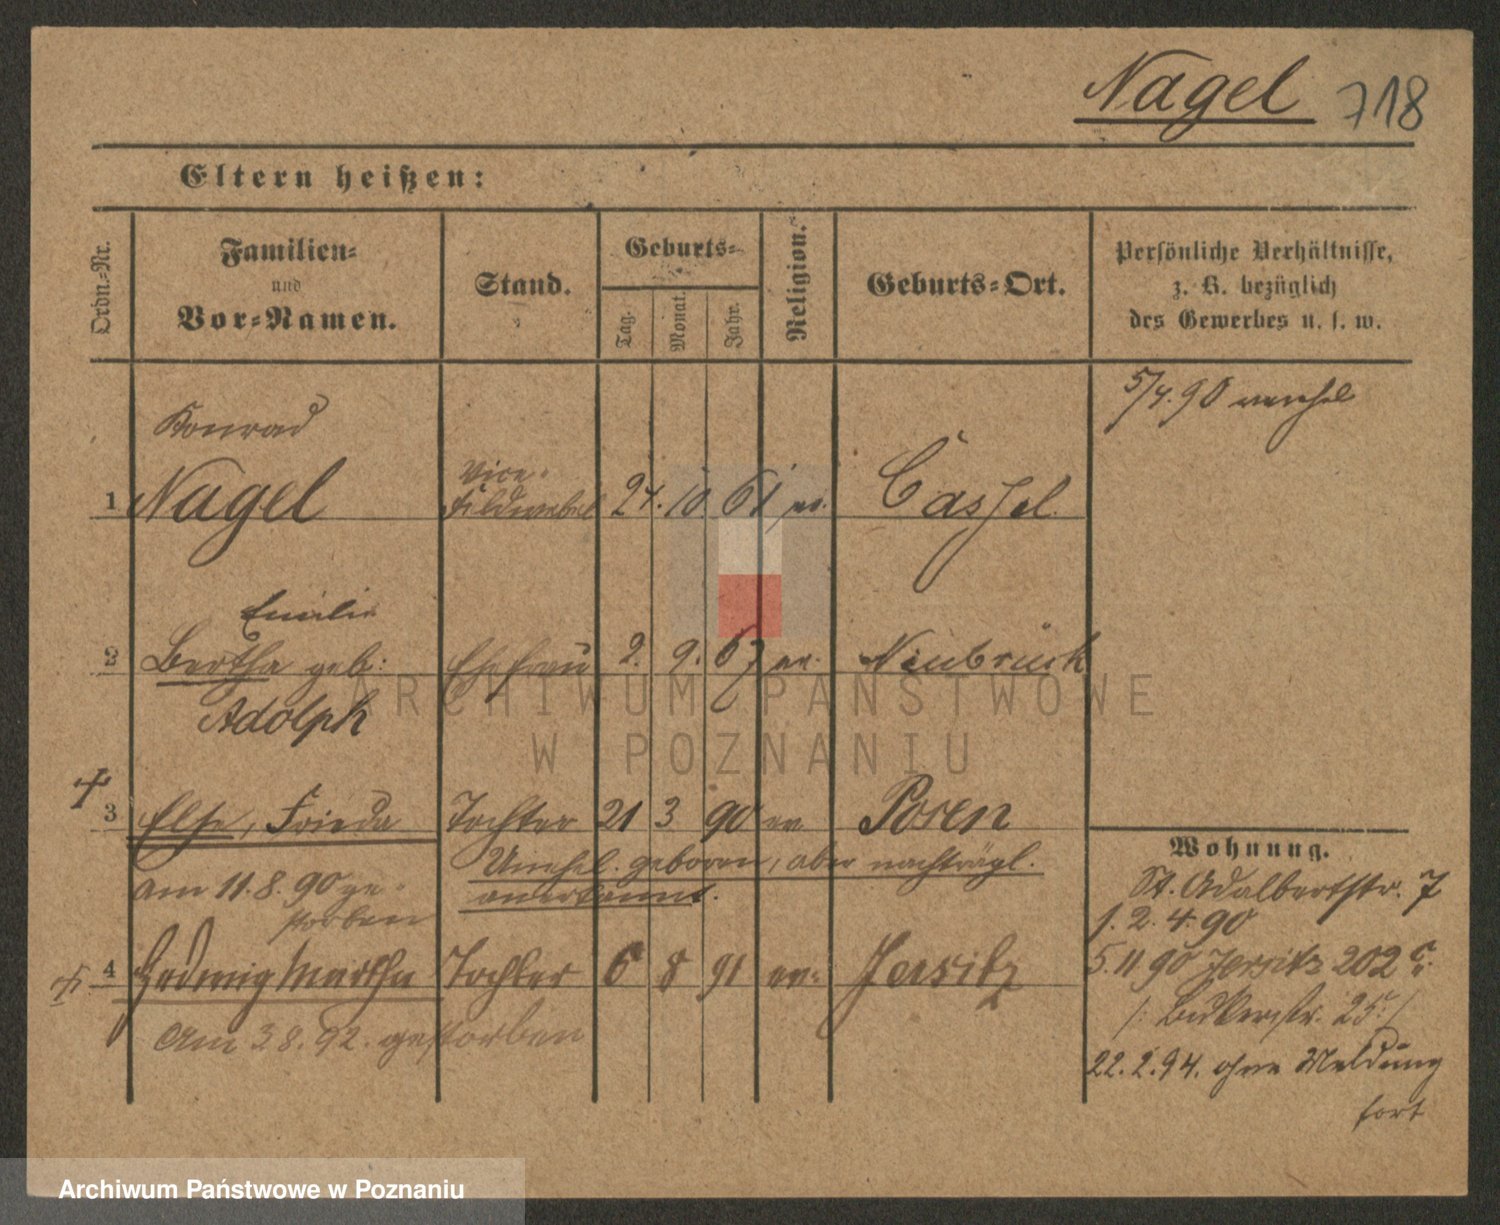 Nagel 718
Eltern heißen:
Ordn.-Nr.
Familien-
und
Vor-Namen.
Stand.
Geburts-
Tag.
Monat.
Jahr.
Religion.
Geburts-Ort.
Persönliche Verhältnisse,
z. B. bezüglich
des Gewerbes u. s. w.
5/4.90 verehel
Konrad
1 Nagel Vice-Feldwebel 24. 10. 61 ev. Cassel.
Emilie
2 Bertha geb: Ehefrau 2. 9. 67 ev. Neubrück
Adolph
3 Else, Frieda Tochter 21 3 90 ev Posen
Unehel. geboren, aber nachträgl.
anerkannt.
am 11.8.90 ge-
storben
4 Hedwig Martha Tochter 6 8 91 ev. Jersitz
Am 3 8. 92. gestorben
Wohnung.
St. Adalbertstr. 7
1. 2. 4. 90
5. 11 90 Jersitz 202 c.
/: Bukerstr. 25 :/
22. 2. 94. ohne Meldung
fort
ARCHIWUM PAŃSTWOWE
W POZNANIU
Archiwum Państwowe w Poznaniu